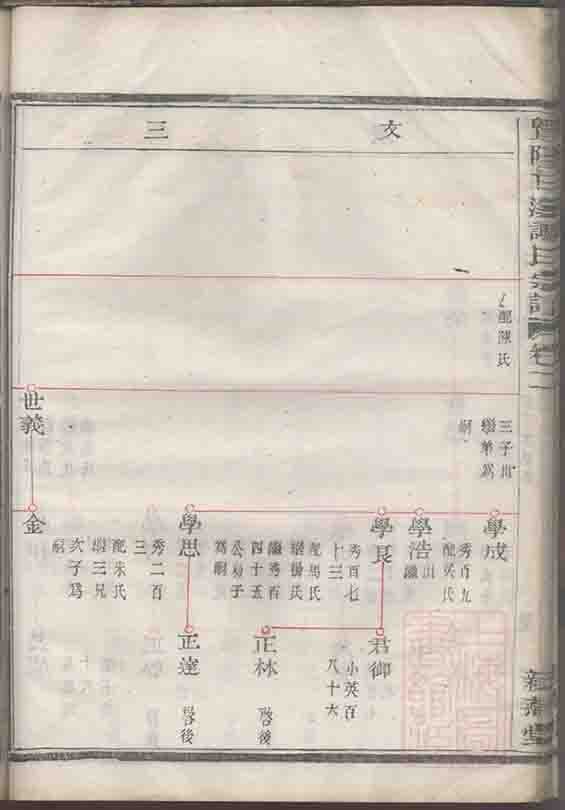 文 三
配陳氏
三子出
繼弟爲
嗣
學成
秀百九
配吳氏
學浩
出繼
學良
秀百七
十三
配馬氏
繼楊氏
繼秀百
四十五
公幼子
爲嗣
學思
秀二百
三
配朱氏
次子爲
嗣
世義
金
君御
小英百
八十六
正林
啓後
正達
啓後